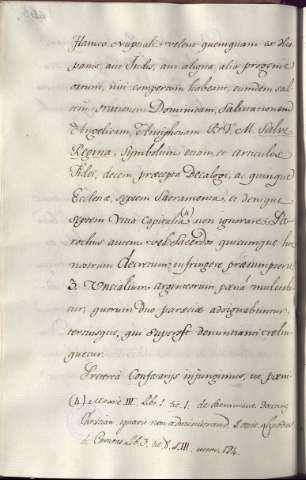 nuptiali velint quemquam ex His-
panis, aut Indis, aut aliqua alia progenie
ortum, nisi compertum habeant, eundem sal-
tem orationem Dominicam, Salutationem
Angelicam, Antiphonam B. V. M. Salve
Regina, Symbolum etiam et articulos
Fidei, decem præcepta Decalogi, ac quinque
Ecclesiæ, septem Sacramenta, et denique
septem Vitia Capitalia (h) non ignorare. Pa-
rochus autem vel Sacerdos quicumque hoc
nostrum Decretum infringere præsumpserit
3 Uncialium argenteorum pœnâ mulcta-
tur, quorum duo parœciæ adsignabuntur,
tertiusque, qui superest denuntianti relin-
quetur.
Præterea Confesariis injungimus, ut pœni-
(h) Mexic. III. Lib. 1. tit. 1. de
Christian.
Lib. 3. tit. III num. 184.